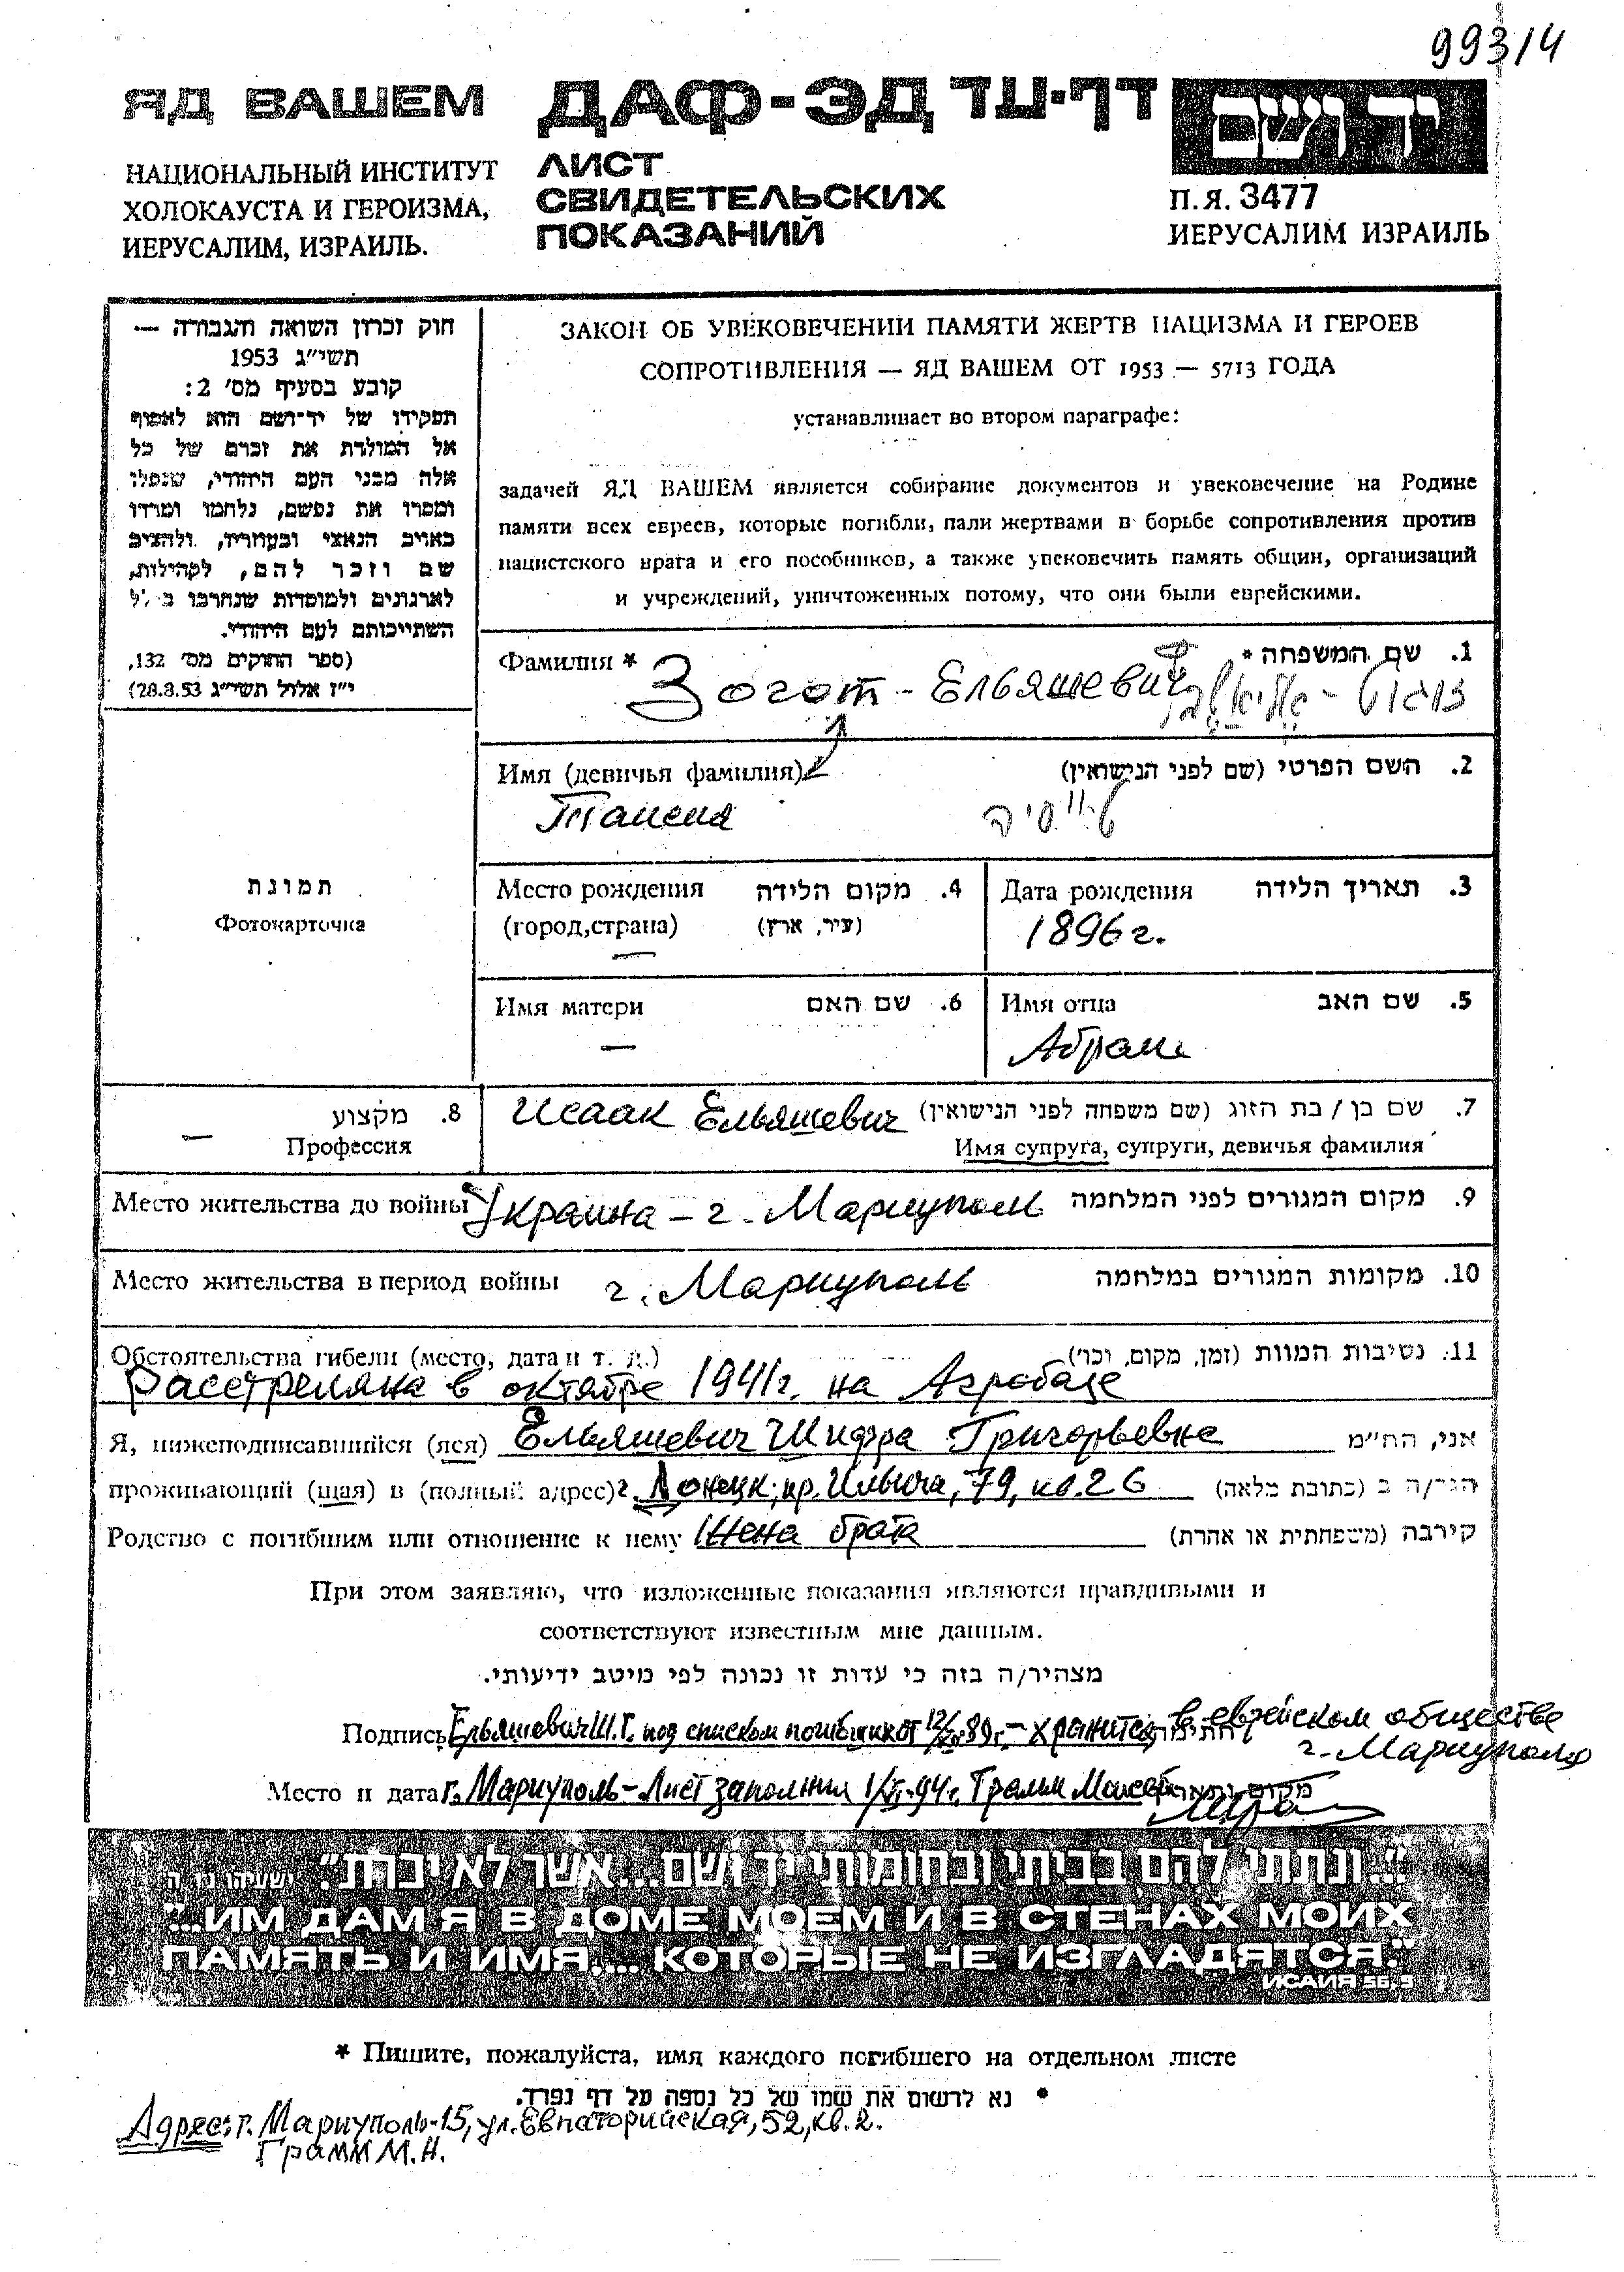 99314
ЯД ВАШЕМ
НАЦИОНАЛЬНЫЙ ИНСТИТУТ
ХОЛОКАУСТА И ГЕРОИЗМА,
ИЕРУСАЛИМ, ИЗРАИЛЬ.
ДАФ-ЭД דף-עד
ЛИСТ
СВИДЕТЕЛЬСКИХ
ПОКАЗАНИЙ
יד ושם
П.Я. 3477
ИЕРУСАЛИМ ИЗРАИЛЬ
חוק זכרון השואה והגבורה —
תשי״ג 1953
קובע בסעיף מס׳ 2:
תפקידו של יד-ושם הוא לאסוף
אל המולדת את זכרם של כל
אלה מבני העם היהודי, שנפלו
ומסרו את נפשם, נלחמו ומרדו
באויב הנאצי ובעוזריו, ולהציב
שם וזכר להם, לקהילות,
לארגונים ולמוסדות שנחרבו בגלל
השתייכותם לעם היהודי.
(ספר החוקים מס׳ 132,
י״ז אלול תשי״ג 28.8.53)
ЗАКОН ОБ УВЕКОВЕЧЕНИИ ПАМЯТИ ЖЕРТВ НАЦИЗМА И ГЕРОЕВ
СОПРОТИВЛЕНИЯ — ЯД ВАШЕМ ОТ 1953 — 5713 ГОДА
устанавливает во втором параграфе:
задачей ЯД ВАШЕМ является собирание документов и увековечение на Родине
памяти всех евреев, которые погибли, пали жертвами в борьбе сопротивления против
нацистского врага и его пособников, а также увековечить память общин, организаций
и учреждений, уничтоженных потому, что они были еврейскими.
Фамилия * 1. שם המשפחה *
Зогот - Ельяшевич
Имя (девичья фамилия) 2. השם הפרטי (שם לפני הנישואין)
Таисия טייסיה
תמונת
Фотокарточка
Место рождения 4. מקום הלידה
(город,страна) (עיר, ארץ)
—
Дата рождения 3. תאריך הלידה
1896 г.
Имя матери 6. שם האם
—
Имя отца 5. שם האב
Абрам
8. מקצוע
— Профессия
Исаак Ельяшевич 7. שם בן / בת הזוג (שם משפחה לפני הנישואין)
Имя супруга, супруги, девичья фамилия
Место жительства до войны Украина - г. Мариуполь 9. מקום המגורים לפני המלחמה
Место жительства в период войны г. Мариуполь 10. מקומות המגורים במלחמה
Обстоятельства гибели (место, дата и т. д.) 11. נסיבות המוות (זמן, מקום, וכו׳)
Расстреляна в октябре 1941г. на Агробазе
Я, нижеподписавшийся (яся) Ельяшевич Шифра Григорьевна אני, הח״מ
проживающий (щая) в (полный адрес) г. Донецк, пр. Ильича, 79, кв. 26 הגר/ה ב (כתובת מלאה)
Родство с погибшим или отношение к нему Жена брата קירבה (משפחתית או אחרת)
При этом заявляю, что изложенные показания являются правдивыми и
соответствуют известным мне данным.
מצהיר/ה בזה כי עדות זו נכונה לפי מיטב ידיעותי.
Подпись Ельяшевич Ш.Г. под списком погибших от 89г. - хранится в еврейском обществе
г. Мариуполь
Место и дата г. Мариуполь - Лист заполнил 1/VI-94г. Грамм
״...ונתתי להם בביתי ובחומותי יד ושם...אשר לא יכרת״. ישעיהו נו ה
"...ИМ ДАМ Я В ДОМЕ МОЕМ И В СТЕНАХ МОИХ
ПАМЯТЬ И ИМЯ,... КОТОРЫЕ НЕ ИЗГЛАДЯТСЯ."
ИСАИЯ 56,5
* Пишите, пожалуйста, имя каждого погибшего на отдельном листе
* נא לרשום את שמו של כל נספה על דף נפרד.
Адрес: г. Мариуполь-15, ул. Евпаторийская, 52, кв. 2.
Грамм М.Н.